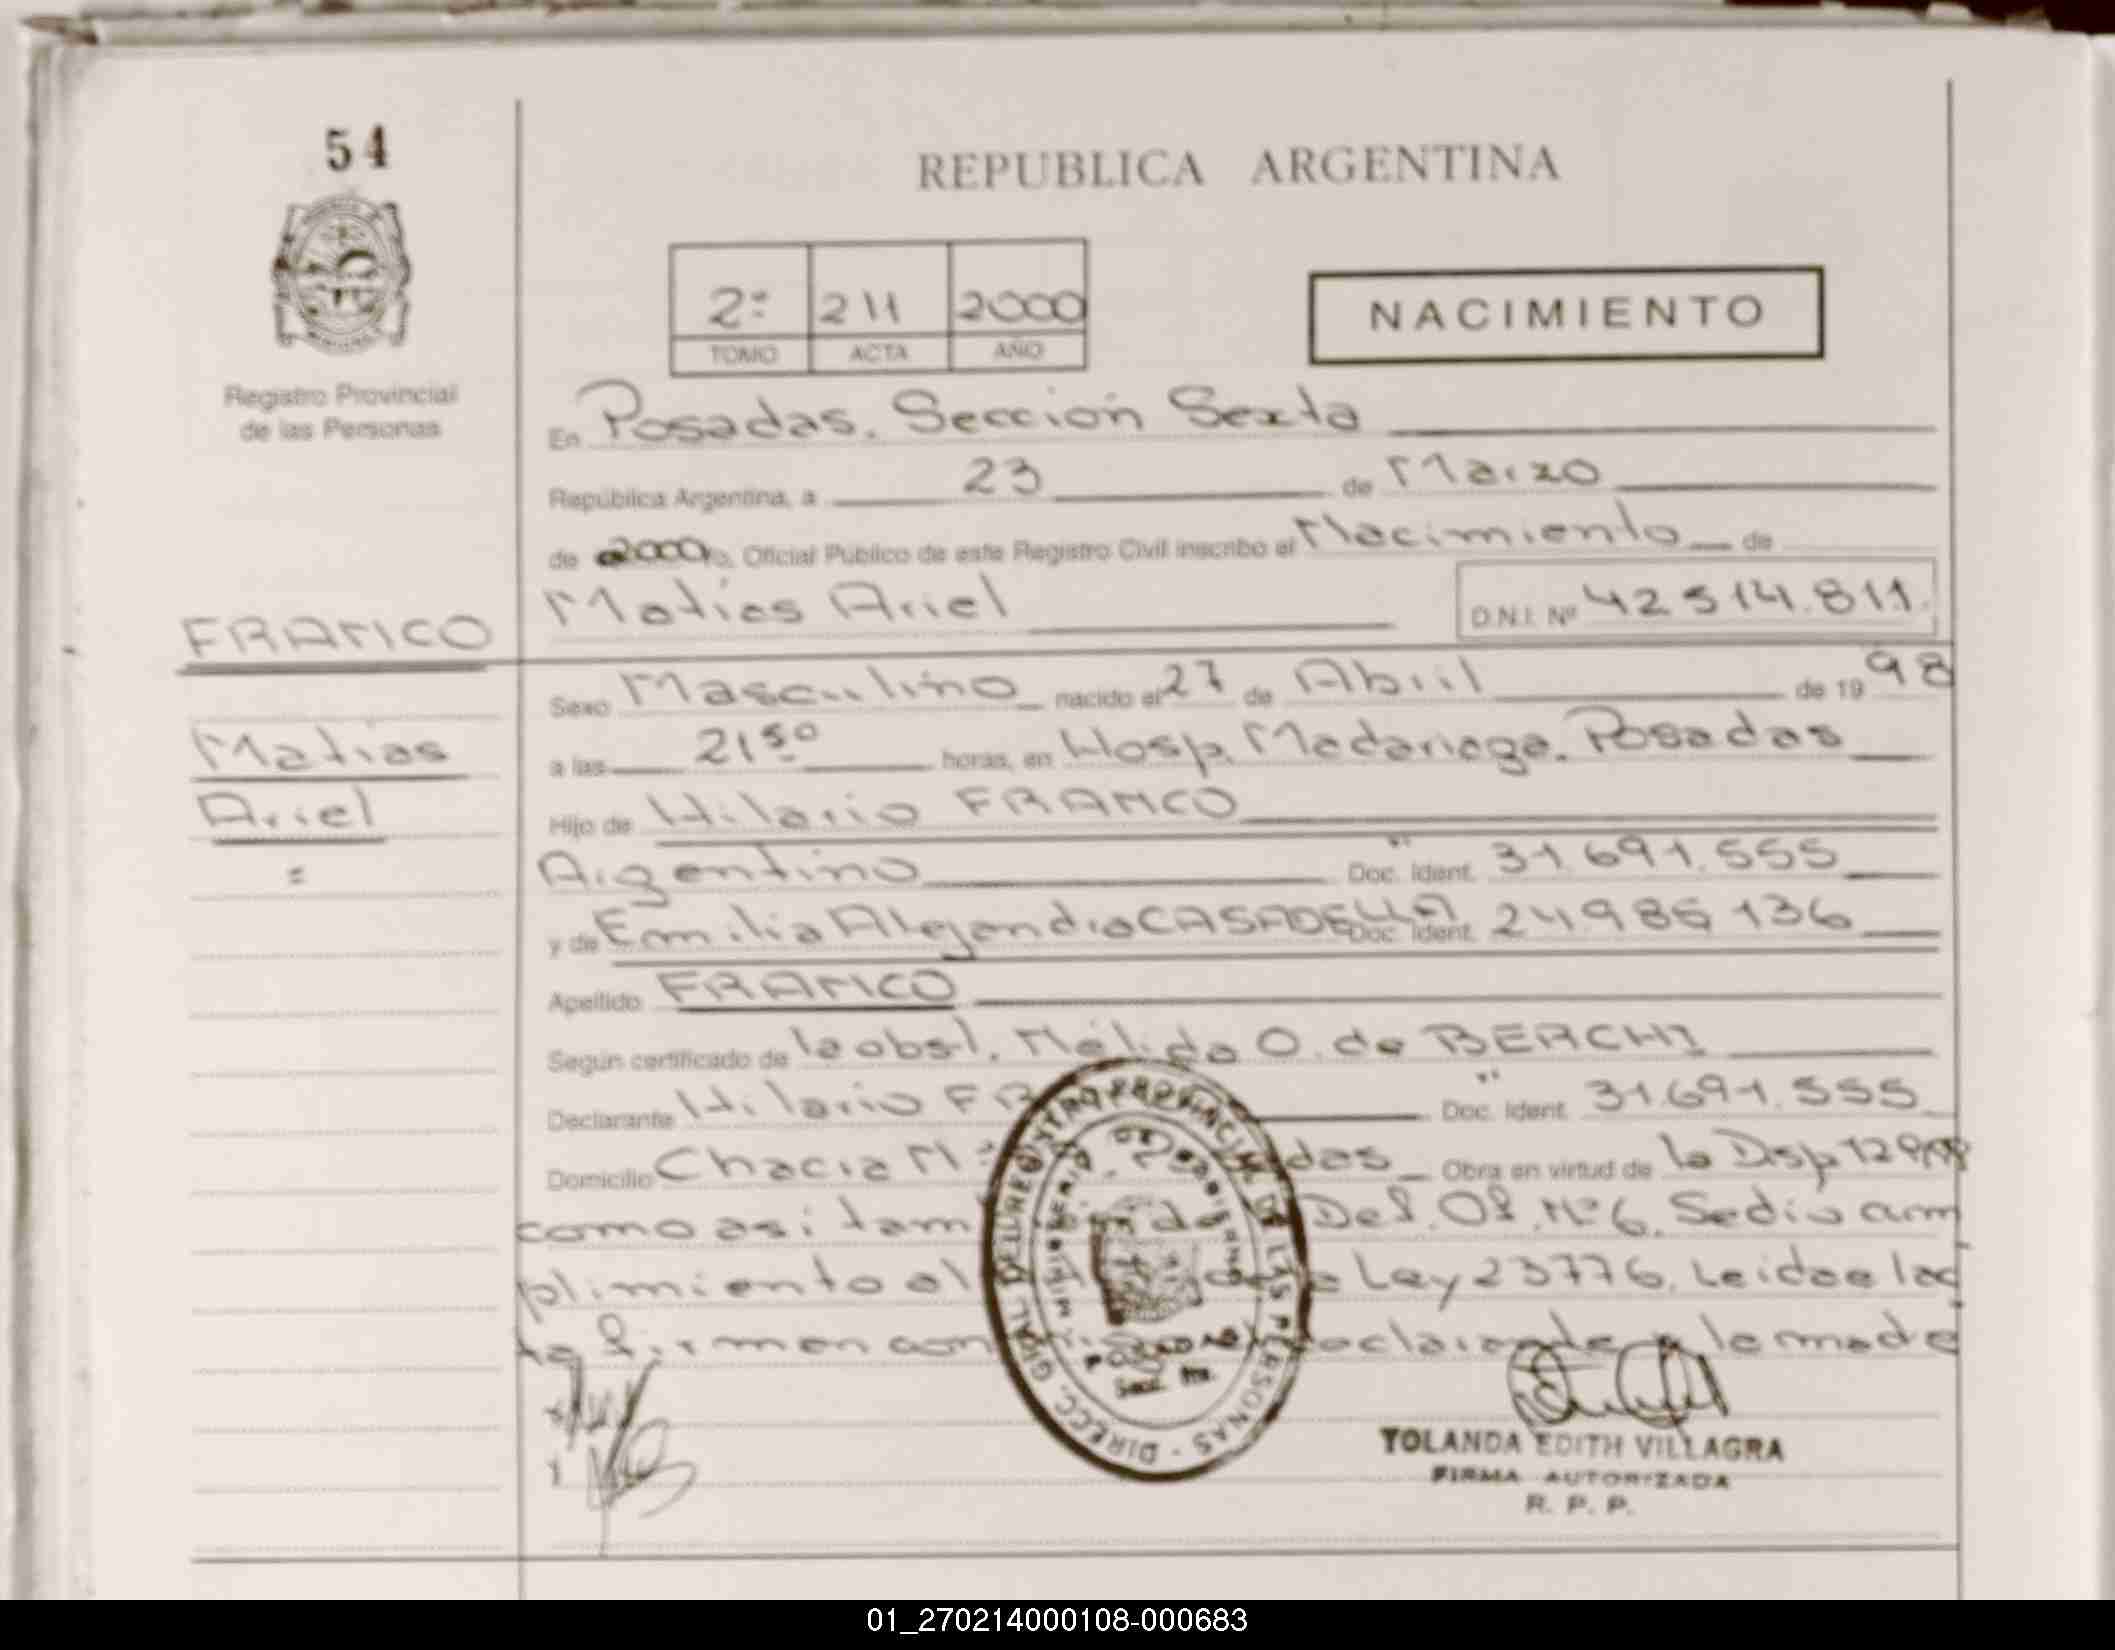 54
REPUBLICA ARGENTINA
2º 211 2000
TOMO ACTA AÑO
NACIMIENTO
Registro Provincial
de las Personas
En Posadas. Sección Sexta
República Argentina, a 23 de Marzo
de 2000 yo, Oficial Público de este Registro Civil inscribo el Nacimiento de
FRANCO
Matias Ariel
D.N.I. Nº 42514.811.
Sexo Masculino nacido el 27 de Abril de 19 98
Matias
Ariel
=
a las 21 50 horas, en Hosp. Madariaga. Posadas
Hijo de Hilario FRANCO
Argentino Doc. Ident. 31.691.555
y de Emilia Alejandra CASADELLA Doc. Ident. 24.986 136
Apellido FRANCO
Según certificado de la obst. Nélida O. de BERCHI
Declarante Hilario Doc. Ident. 31.691.555
Domicilio Chacra Nº Obra en virtud de la Disp 129/98
como asi Del. Of. Nº 6. Sedio cum
plimiento al Ley 23776. Leida el ac
ta firman con declarante y la madre
DIRECC. GRAL. DEL REGISTRO PROVINCIAL DE LAS PERSONAS
MINISTERIO DE GOBIERNO
POSADAS
YOLANDA EDITH VILLAGRA
FIRMA AUTORIZADA
R. P. P.
01_270214000108-000683